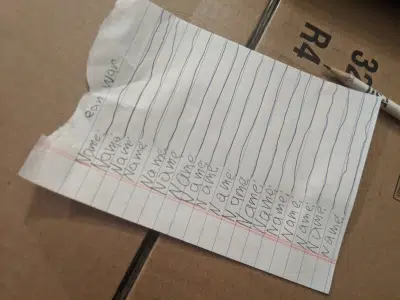 Name
Name
Name
Name
Name
Name
Name
Name
Name
Name
Name
Name
Name
Name
Name
Name
Name
R4